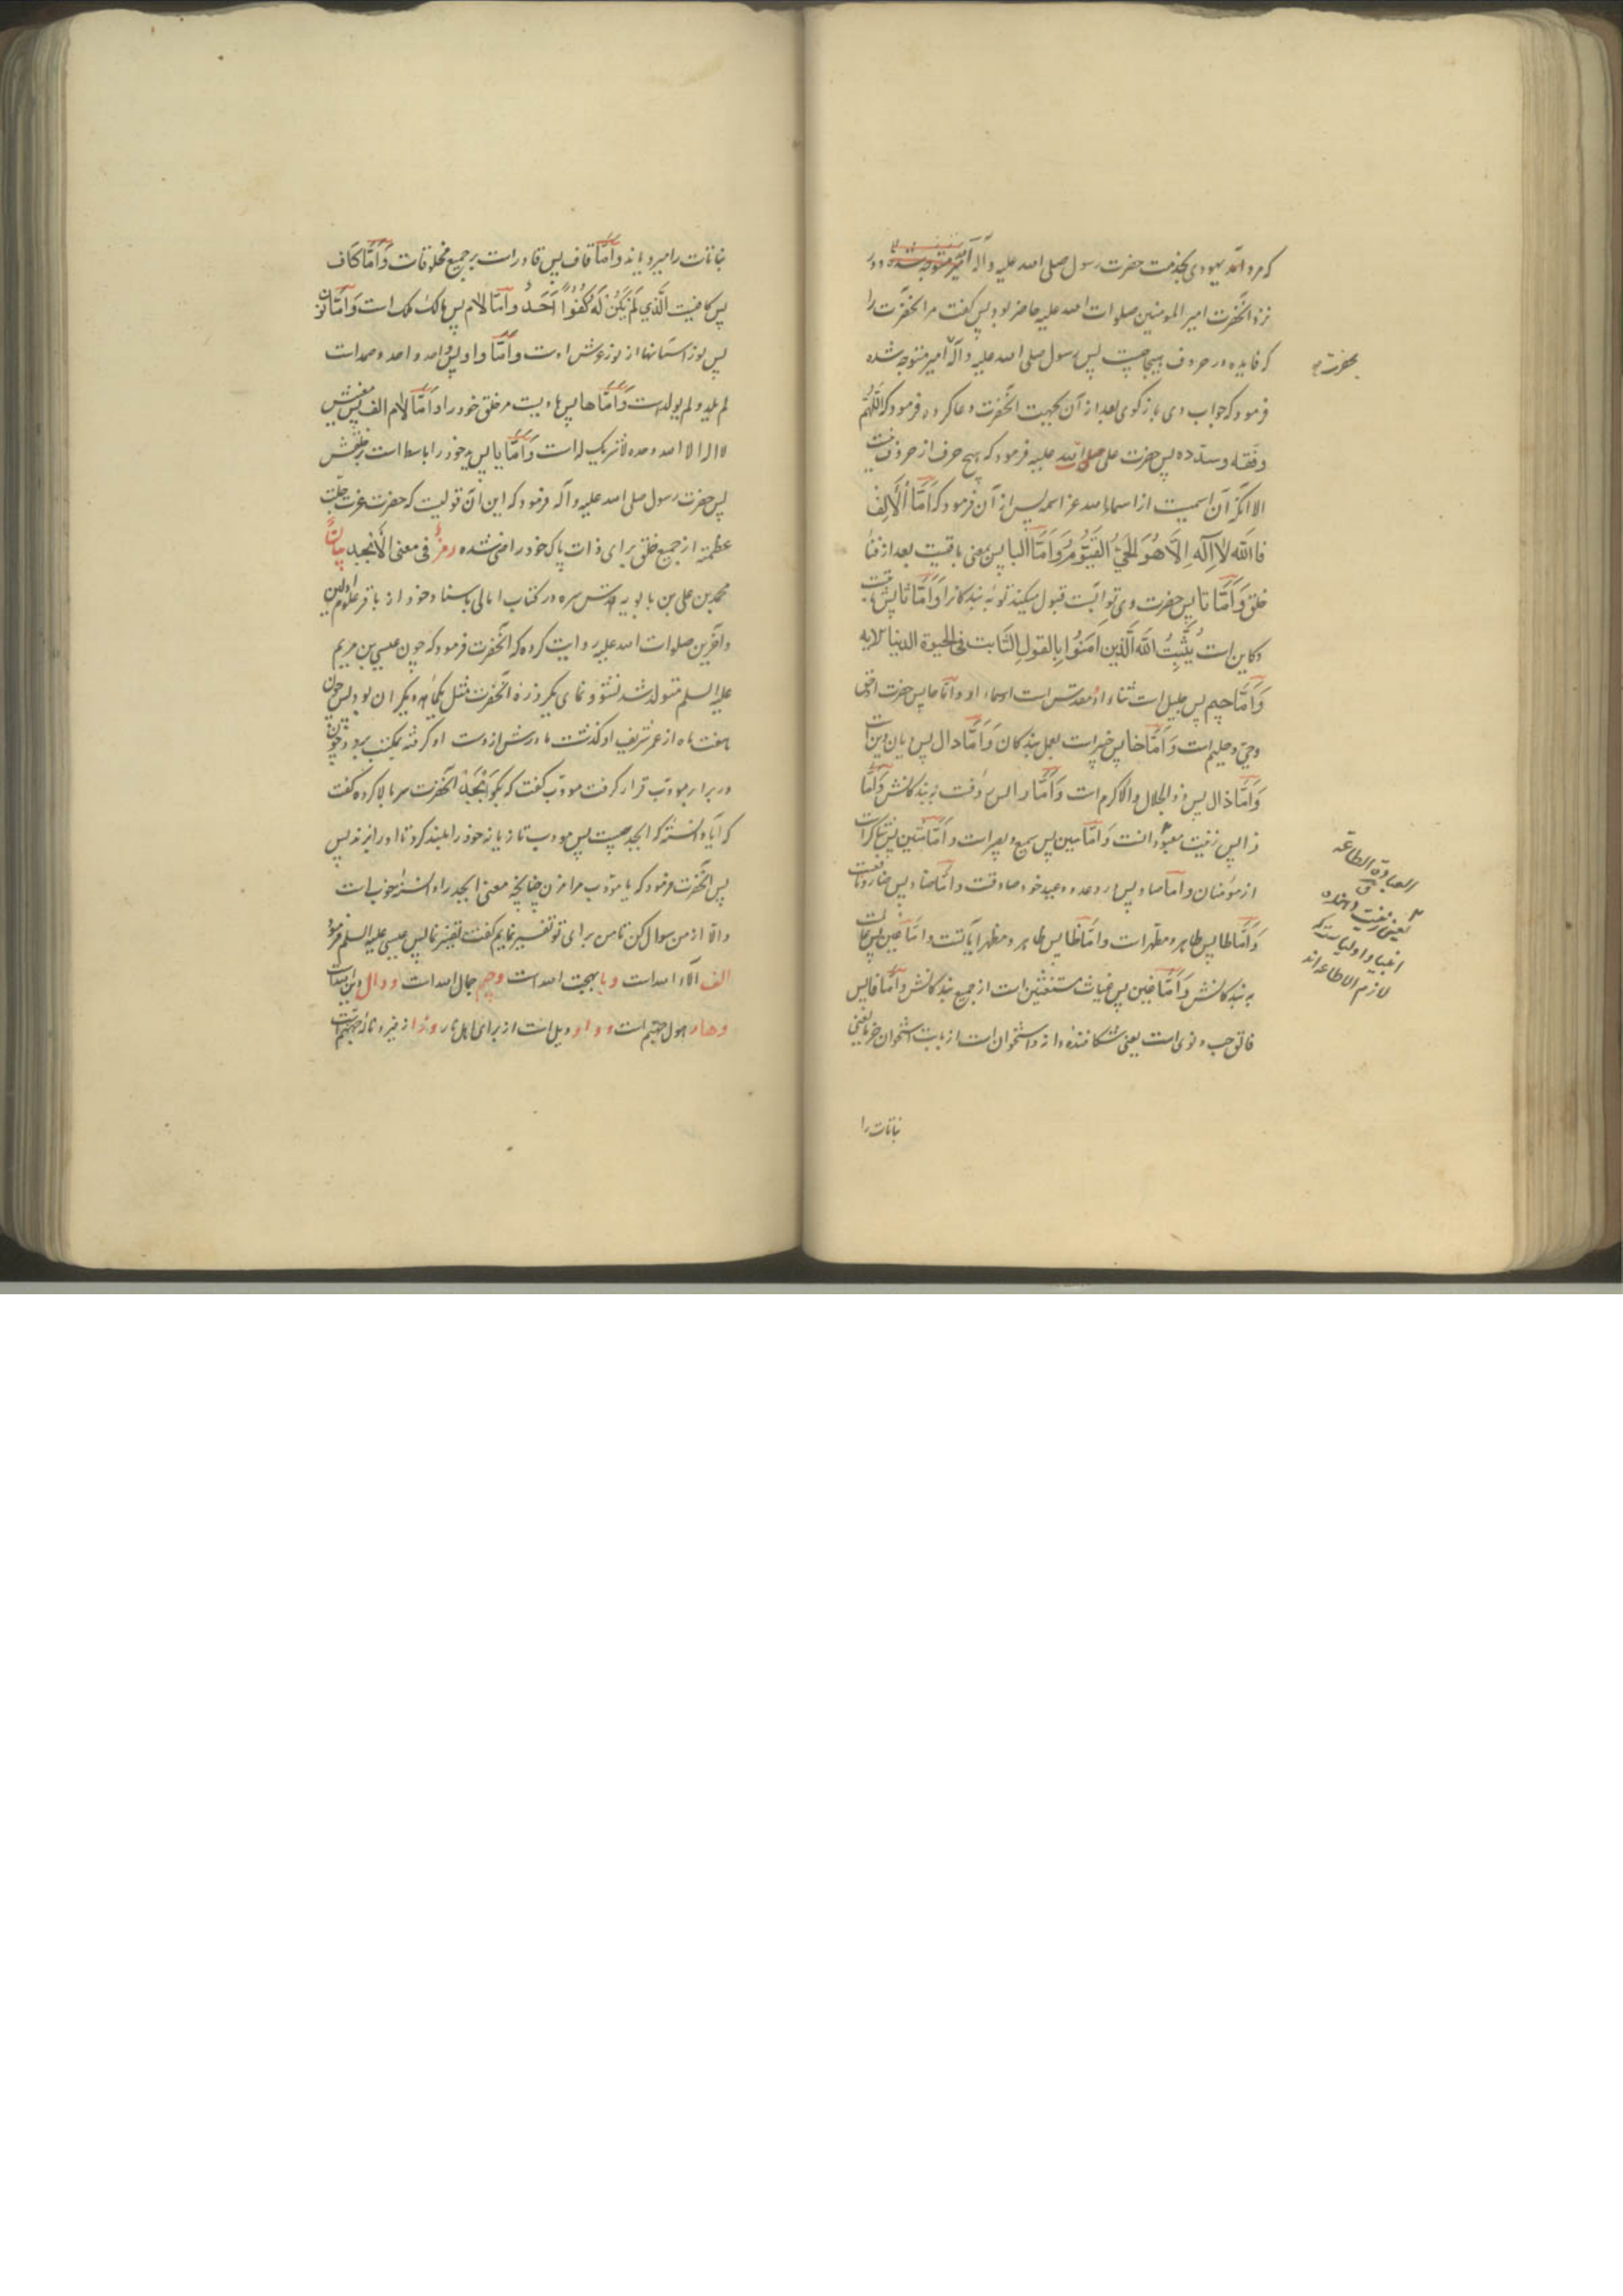 که مرد آمد یهودی بخدمت حضرت رسول صلی الله علیه و آله امیر متوجه شده و در
نزد آنحضرت امیر المومنین صلوات الله علیه حاضر بود پس گفت مر آنحضرت را
که فایده در حروف هیجا چیست پس رسول صلی الله علیه و آله امیر متوجه شده
بحضرت
فرمود که جواب وی باز کوی بعد از آن بجهت آنحضرت دعا کرده فرمود که اللهم
وفقه وسدده پس حضرت علی صلوات الله علیه فرمود که هیچ حرف از حروف نیست
الا آنکه آن اسمیست از اسماء الله عز اسمه پس از آن فرمود که اَمَّا اَلْاَلِف
فالله لا اله الا هو الحی القیوم وَاَمَّا البا پس بمعنی باقیست بعد از فنا
خلق وَاَمَّا تا پس حضرت وی توابست قبول میکند توبه بندکانرا وَاَمَّا ثا پس ثابت
وکاین است یُثَبِّتُ الله الَّذین امَنُوا بِالقولِ الثَّابت فی الحیوة الدنیا الایه
وَاَمَّا جیم پس جلیل است ثناء او و مقدس است اسماء او و اَمَّا حا پس حضرت او حق
وحی وحلیم است وَاَمَّا خا پس خبیر است بعمل بندکان وَاَمَّا دال پس دیان دین است
وَاَمَّا ذال پس ذو الجلال والاکرام است وَاَمَّا را پس رؤفست به بندکانش وَاَمَّا
زا پس زینت معبود آنست وَاَمَّا سین پس سمیع وبصیر است واَمَّا شین پس شاکر است
از مؤمنان واَمَّا صاد پس در وعده و وعید خود صادقست واَمَّا ضاد پس ضار ونافعست
وَاَمَّا طا پس طاهر ومطهر است واَمَّا ظا پس ظاهر ومظهر آیاتست واَمَّا عین پس عالمست
به بندکانش وَاَمَّا غین پس غیاث مستغیثین است از جمیع بندکانش واَمَّا فا پس
فالق حب ونوی است یعنی شکافنده دانه و استخوان است از بابت استخوان خرما یعنی
العبادة الطاعة
یعنی زینت دهنده
انبیا و اولیاست که
لازم الاطاعه اند
نباتات را
نباتات را میرویاند واَمَّا قاف پس قادر است بر جمیع مخلوقات وَاَمَّا کاف
پس کافیست الَّذی لَم یَکُنْ لَهُ کُفُواً اَحَدٌ واَمَّا لام پس مالک ملک است وَاَمَّا نون
پس نور آسمانها از نور عرش اوست واَمَّا واو پس واحد واحد وصمد است
لم یلد ولم یولد است وَاَمَّا ها پس هادیست مر خلق خود را واَمَّا لام الف پس معنیش
لا اله الا الله وحده لا شریک له است وَاَمَّا یا پس ید خود را باسط است بر خلقش
پس حضرت رسول صلی الله علیه و آله فرمود که این آن قولیست که حضرت عزت جلت
عظمته از جمیع خلق برای ذات پاک خود راضی شده رمزٌ فی معنی الاَبْجد بیانٌ
محمد بن علی بن بابویه قدس سره در کتاب امالی باسناد خود از باقر علوم اولین
وآخرین صلوات الله علیه روایت کرده که آنحضرت فرمود که چون عیسی بن مریم
علیه السلم متولد شد نشو و نمای یکروزه آنحضرت مثل یکماهه دیکران بود پس چون
هفت ماه از عمر شریف او کذشت مادرش از دست او کرفته بمکتب برد وچون
در برابر مودّب قرار کرفت مودّب کفت که بکو اَبْجَد آنحضرت سر بالا کرده کفت
که آیا دانسته که ابجد چیست پس مودب تازیانه خود را بلند کرد تا او را بزند پس
پس آنحضرت فرمود که یا مودّب مرا مزن چنانچه معنی ابجد را دانسته خوبست
والا از من سوال کن تا من برای تو تفسیر نمایم کفت تفسیر نما پس عیسی علیه السلم فرمود
الف آلاء الله است وبا بهجت الله است وجیم جمال الله است ودال دین الله است
وها هول جهنم است وواو ویل است از برای اهل نار وزا زفیر ونار جهنم است